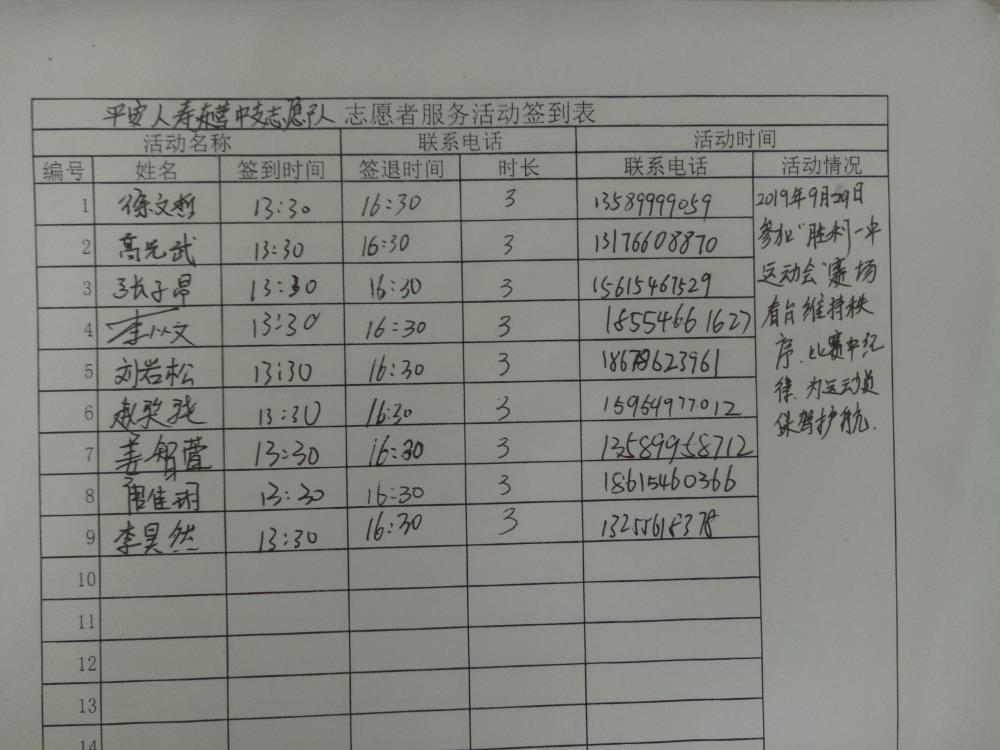 平安人寿东营中支志愿队 志愿者服务活动签到表
活动名称 联系电话 活动时间
编号 姓名 签到时间 签退时间 时长 联系电话 活动情况
1 徐文哲 13:30 16:30 3 13589999059
2 高先武 13:30 16:30 3 13176608870
3 张子昂 13:30 16:30 3 15615467529
4 李以文 13:30 16:30 3 18554661627
5 刘岩松 13:30 16:30 3 18678623961
6 赵 13:30 16:30 3 15954977012
7 姜智萱 13:30 16:30 3 13589958712
8 周佳玥 13:30 16:30 3 18615460366
9 李昊然 13:30 16:30 3 13255618378
10
11
12
13
14
2019年9月29日
参加“胜利一中
运动会”赛场
看台维持秩
序、比赛中纪
律、为运动员
保驾护航.